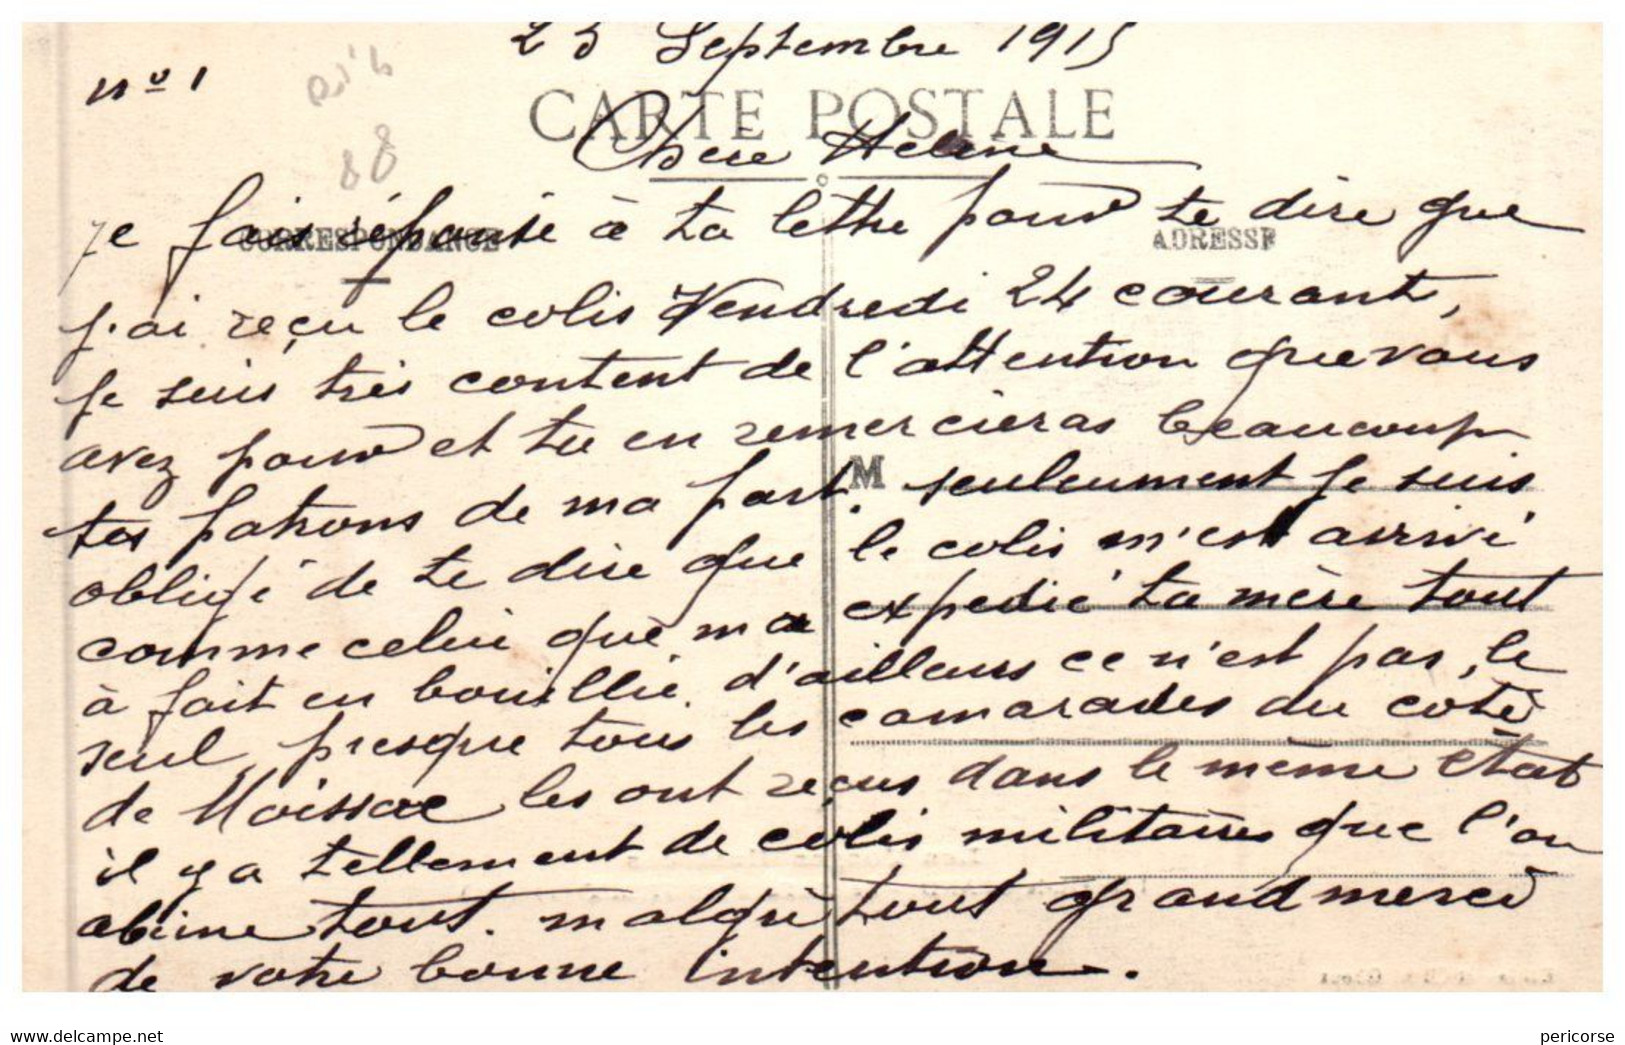 25 Septembre 1915
nº 1
88
CARTE POSTALE
Chere Helene
CORRESPONDANCE
ADRESSE
je fais réponse à ta lettre pour te dire que
j'ai reçu le colis Vendredi 24 courant,
je suis très content de l'attention que vous
avez pour et tu en remercieras beaucoup
tes patrons de ma part. seuleument je suis
M
obligé de te dire que le colis m'est arrivé
comme celui que ma expedié ta mère tout
à fait en bouillie. d'ailleurs ce n'est pas le
seul presque tous les camarades du coté
de Moissac les ont reçus dans le même état
il y a tellement de colis militaires que l'on
abime tout. malgré tout grand merci
de votre bonne intention.
www.delcampe.net
pericorse